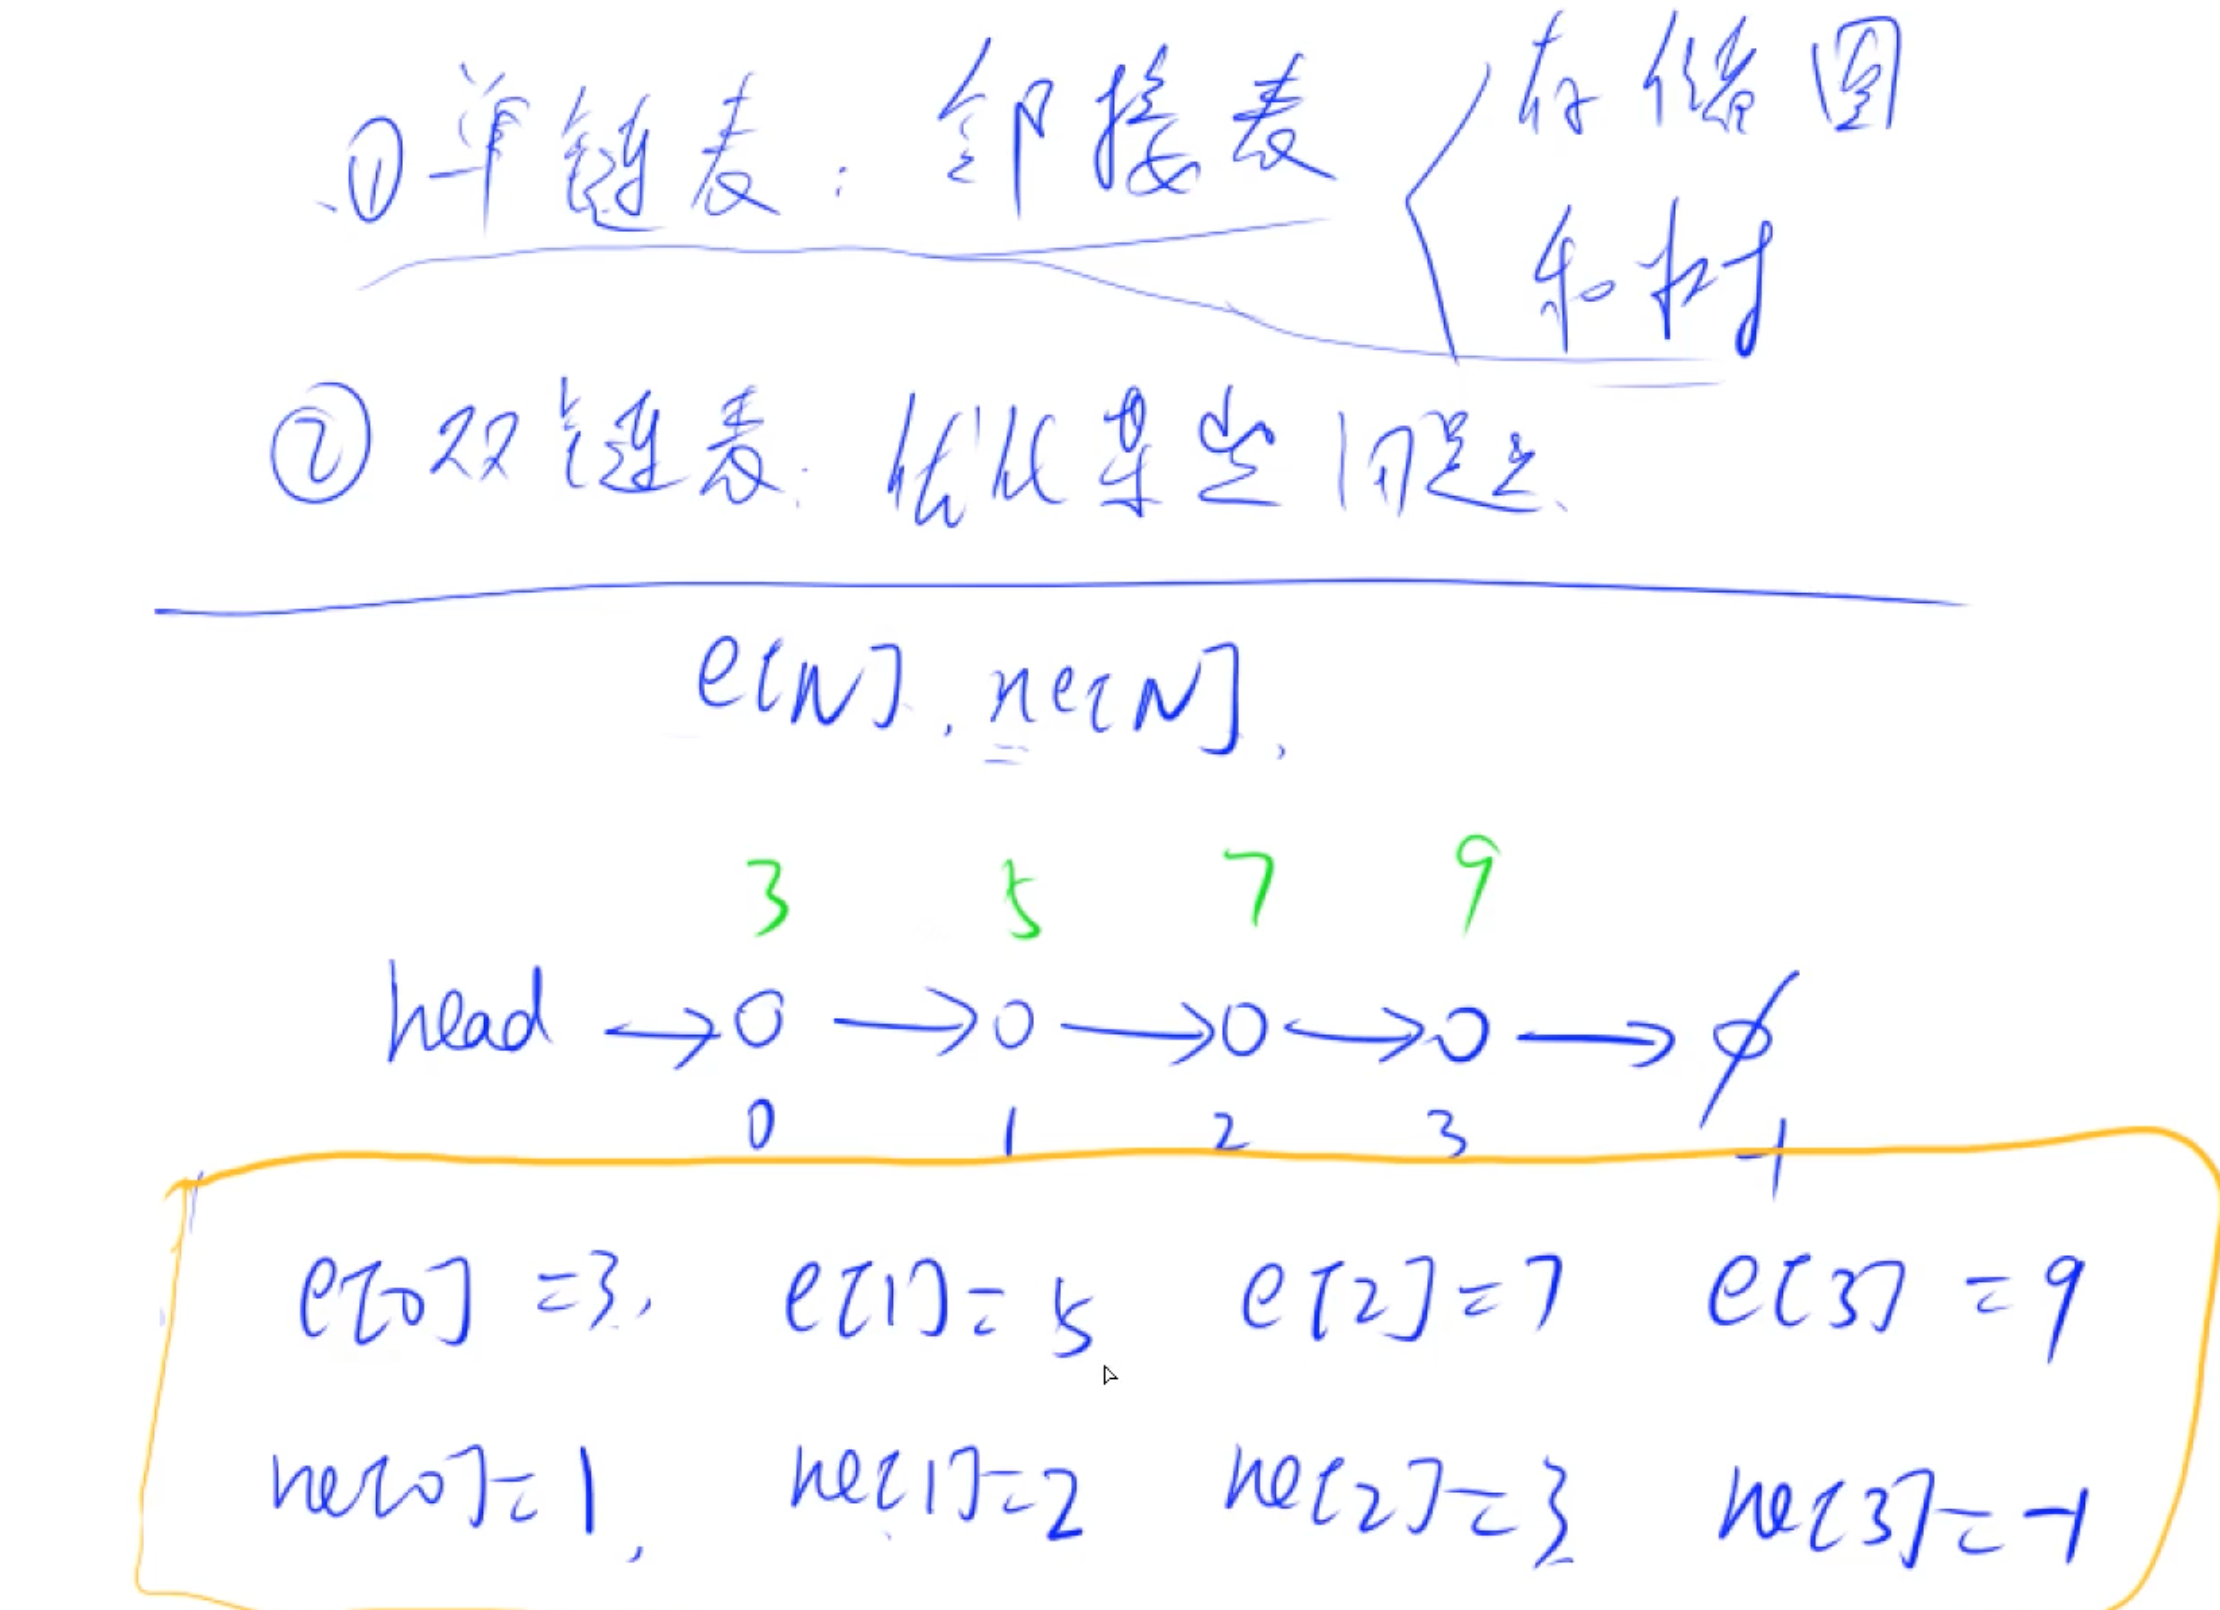 ①单链表：邻接表
存储图
和树
②双链表：优化某些问题
e[N], ne[N],
3 5 7 9
head → O → O → O → O → ∅
0 1 2 3 -1
e[0]=3, e[1]=5 e[2]=7 e[3]=9
ne[0]=1, ne[1]=2 ne[2]=3 ne[3]=-1